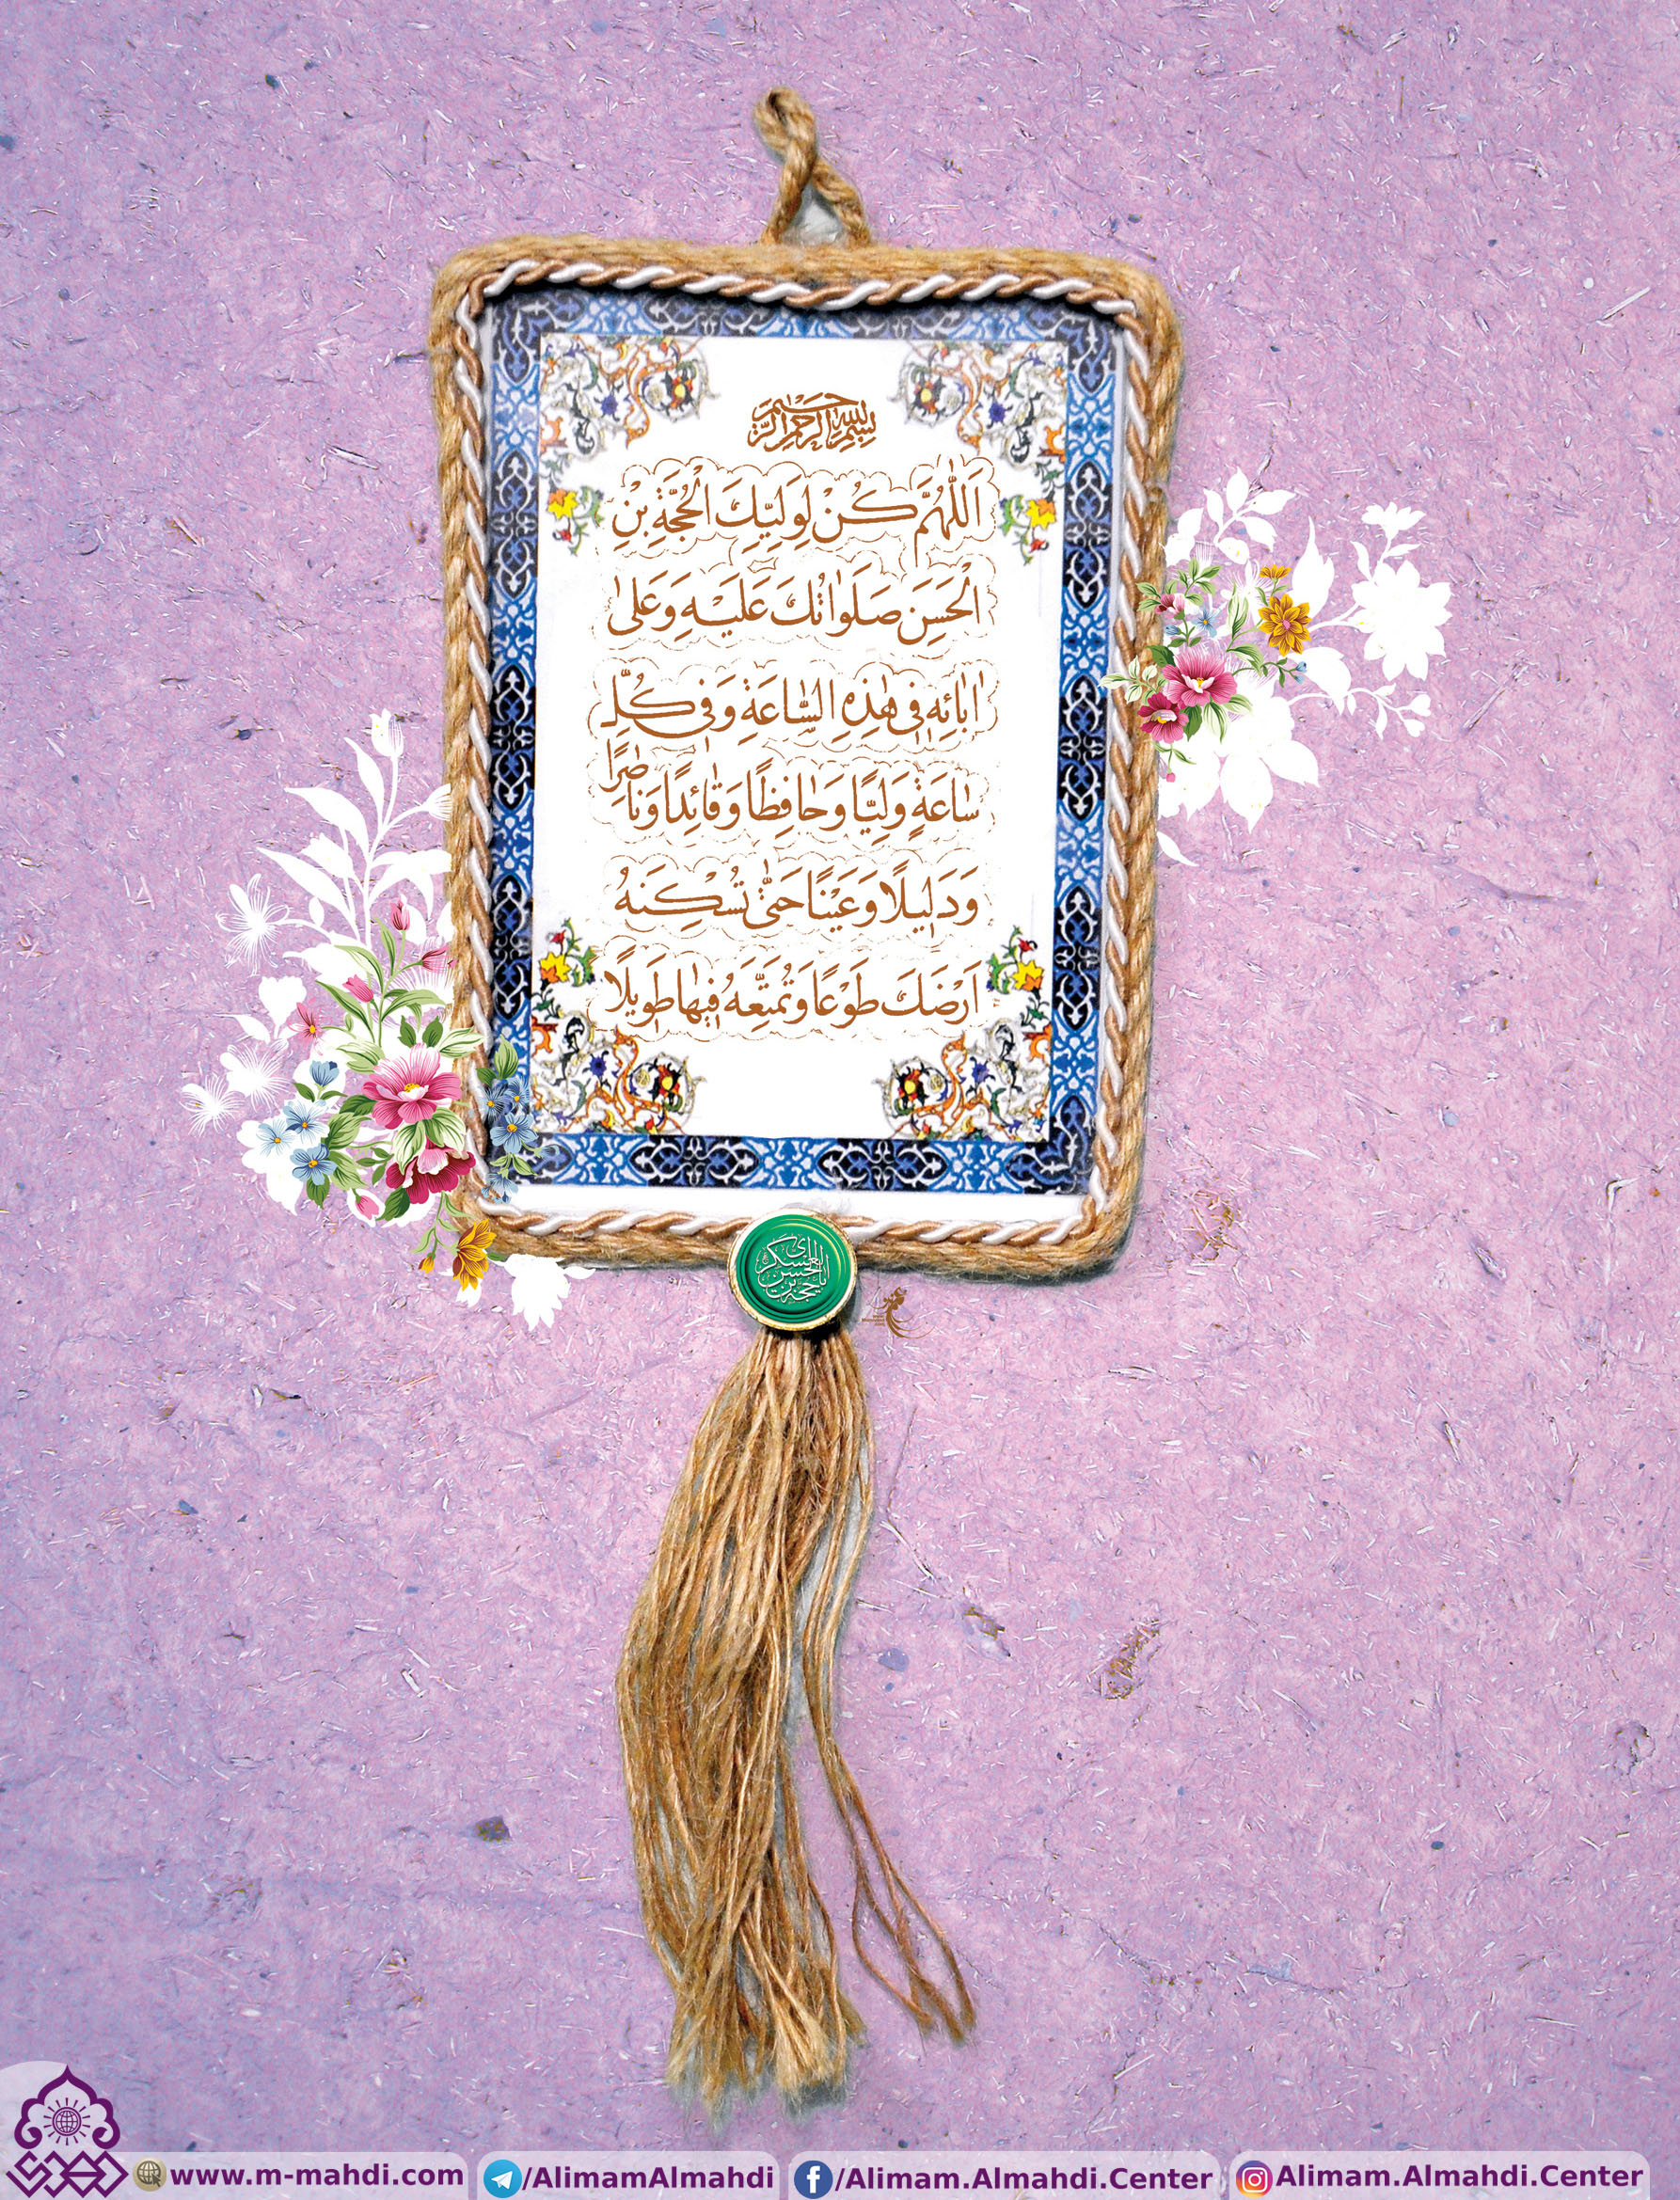 بِسْمِ اللهِ الرَّحْمٰنِ الرَّحيمِ
اَللّٰهُمَّ كُنْ لِوَلِيِّكَ الْحُجَّةِ بْنِ
الْحَسَنِ صَلَوٰاتُكَ عَلَيْهِ وَعَلىٰ
اٰبٰائِهِ فِي هٰذِهِ السّٰاعَةِ وَفِي كُلِّ
سٰاعَةٍ وَلِيًّا وَحٰافِظًا وَقٰائِدًا وَنٰاصِرًا
وَدَلِيلًا وَعَيْنًا حَتّٰى تُسْكِنَهُ
اَرْضَكَ طَوْعًا وَتُمَتِّعَهُ فِيهٰا طَوِيلًا
يا حجة بن الحسن العسكری
www.m-mahdi.com /AlimamAlmahdi /Alimam.Almahdi.Center Alimam.Almahdi.Center